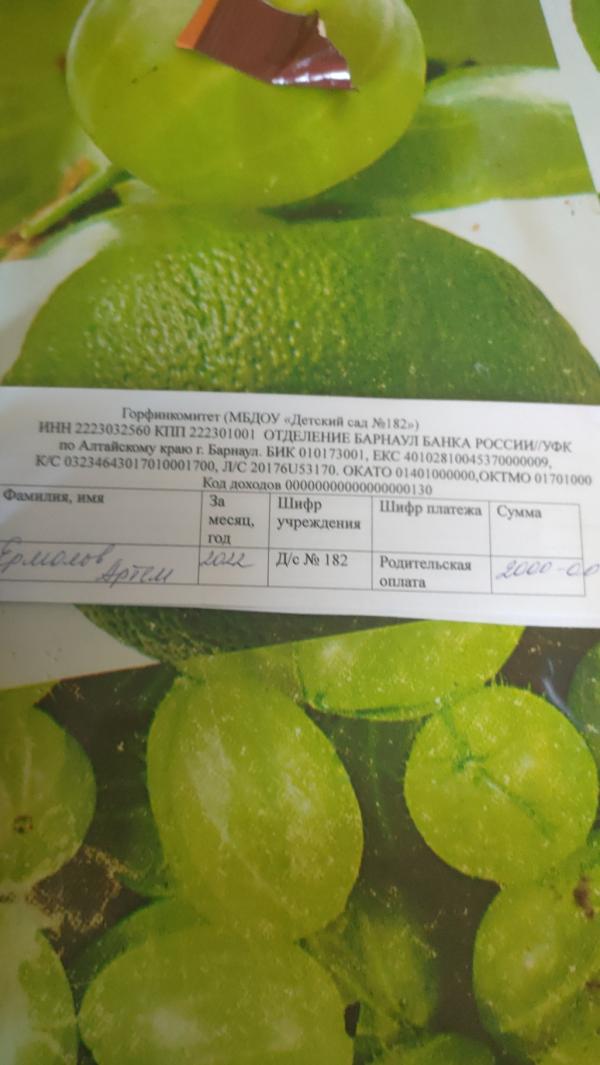 Горфинкомитет (МБДОУ «Детский сад №182»)
ИНН 2223032560 КПП 222301001 ОТДЕЛЕНИЕ БАРНАУЛ БАНКА РОССИИ//УФК
по Алтайскому краю г. Барнаул. БИК 010173001, ЕКС 40102810045370000009,
К/С 03234643017010001700, Л/С 20176U53170. ОКАТО 01401000000,ОКТМО 01701000
Код доходов 00000000000000000130
Фамилия, имя
За месяц, год
Шифр учреждения
Шифр платежа
Сумма
Ермолов Артем
2022
Д/с № 182
Родительская оплата
2000-00